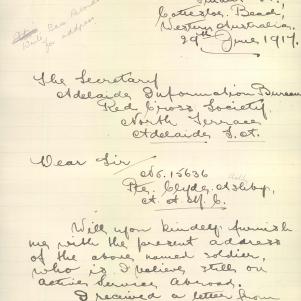 Write Base Records
for address
Cottesloe Beach,
Western Australia.
29th June 1917.
The Secretary
Adelaide Information Bureau
Red Cross Society.
North Terrace
Adelaide S.A.
Dear Sir
No. 15636
Pte. Clyde Ashby.
A. A. M. C.
Will you kindly furnish
me with the present address
of the above named soldier,
who is I believe still on
active service Abroad.
I received a letter from